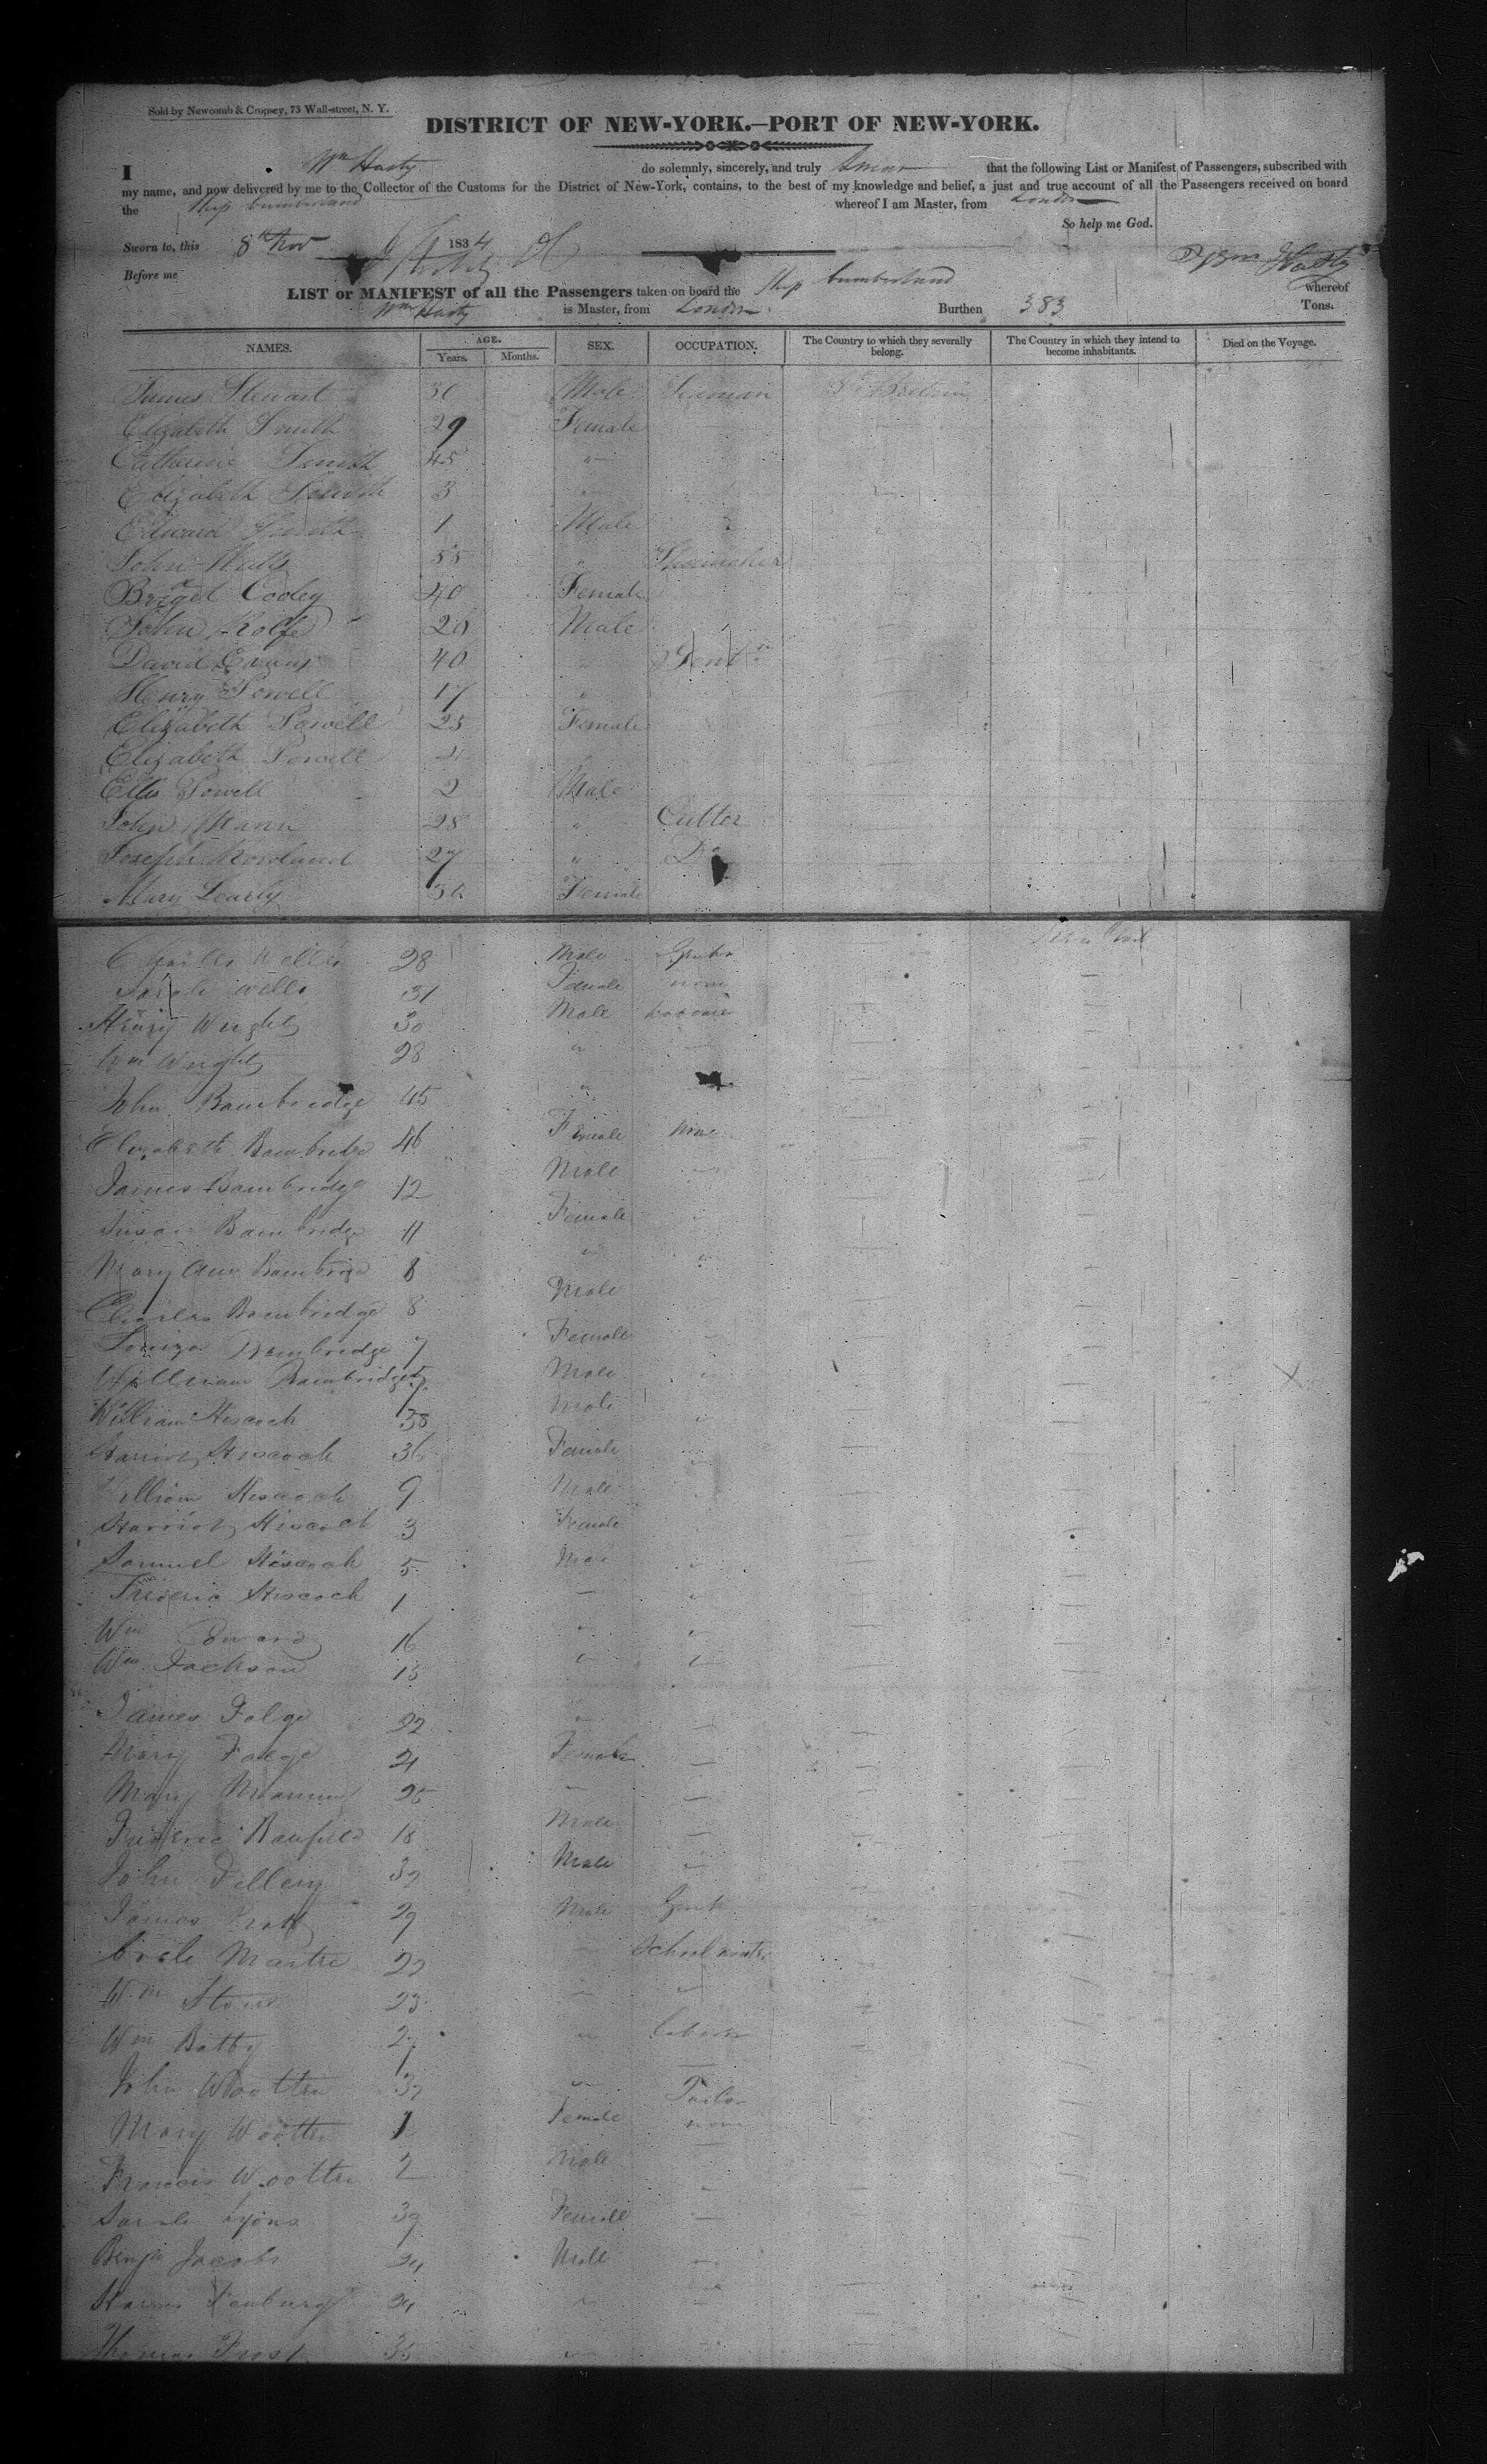 Sold by Newcomb & Cropsey, 73 Wall-street, N. Y.
DISTRICT OF NEW-YORK.—PORT OF NEW-YORK.
I Wm Hasty do solemnly, sincerely, and truly Swear that the following List or Manifest of Passengers, subscribed with
my name, and now delivered by me to the Collector of the Customs for the District of New-York, contains, to the best of my knowledge and belief, a just and true account of all the Passengers received on board
the Ship Cumberland whereof I am Master, from London
So help me God.
Sworn to, this 8th Nov 1834
Wm Hasty
Before me
LIST or MANIFEST of all the Passengers taken on board the Ship Cumberland whereof
Wm Hasty is Master, from London Burthen 383 Tons.
NAMES. AGE. SEX. OCCUPATION. The Country to which they severally belong. The Country in which they intend to become inhabitants. Died on the Voyage.
Years. Months.
James Stewart 30 Male Seaman Gt Britain
Elizabeth Smith 29 Female
Catherine Smith 45 "
Elizabeth Smith 3 "
Edward Smith 1 Male
John 55 " Shoemaker
Cooley 40 Female
John Rolfe 26 Male
David Evans 40
Henry Powell 17 "
Elizabeth Powell 25 Female
Elizabeth Powell
Ellis Powell 2 Male
John Mann 28 " Cutler
Joseph Rowland 27 " Do
Mary Learly 36 Female
Charles Wells 28 Male
Sarah Wells 31 Female none
Henry Wright 30 Male
Wm Wright 28 "
John Bambridge 45 "
Elizabeth Bambridge 46 Female none
James Bambridge 12 Male
Susan Bambridge 11 Female
Mary Ann Bambridge 8 "
Charles Bambridge 8 Male
Louiza Bambridge 7 Female
William Bambridge Male
William Hiscock 38 Male
Harriot Hiscock 36 Female
William Hiscock 9 Male
Harriot Hiscock 3 Female
Samuel Hiscock 5 Male
Frederic Hiscock 1
Wm 16 "
Wm Jackson 13 "
James Folge 22 "
Mary Folge 21 Female
Mary 25
Frederic Banfield 18 Male
John Dillery 32 Male
James Pratt 29 Male
Martre 22 School
Wm Stone 23
Wm Batty 27 "
John Wootten 32 " Tailor
Mary Wootten 1 Female none
Francis Wootten 2 Male
Sarah Lyons 39 Female
Benjn Jacobs 24 Male
24
Thomas Frost 35